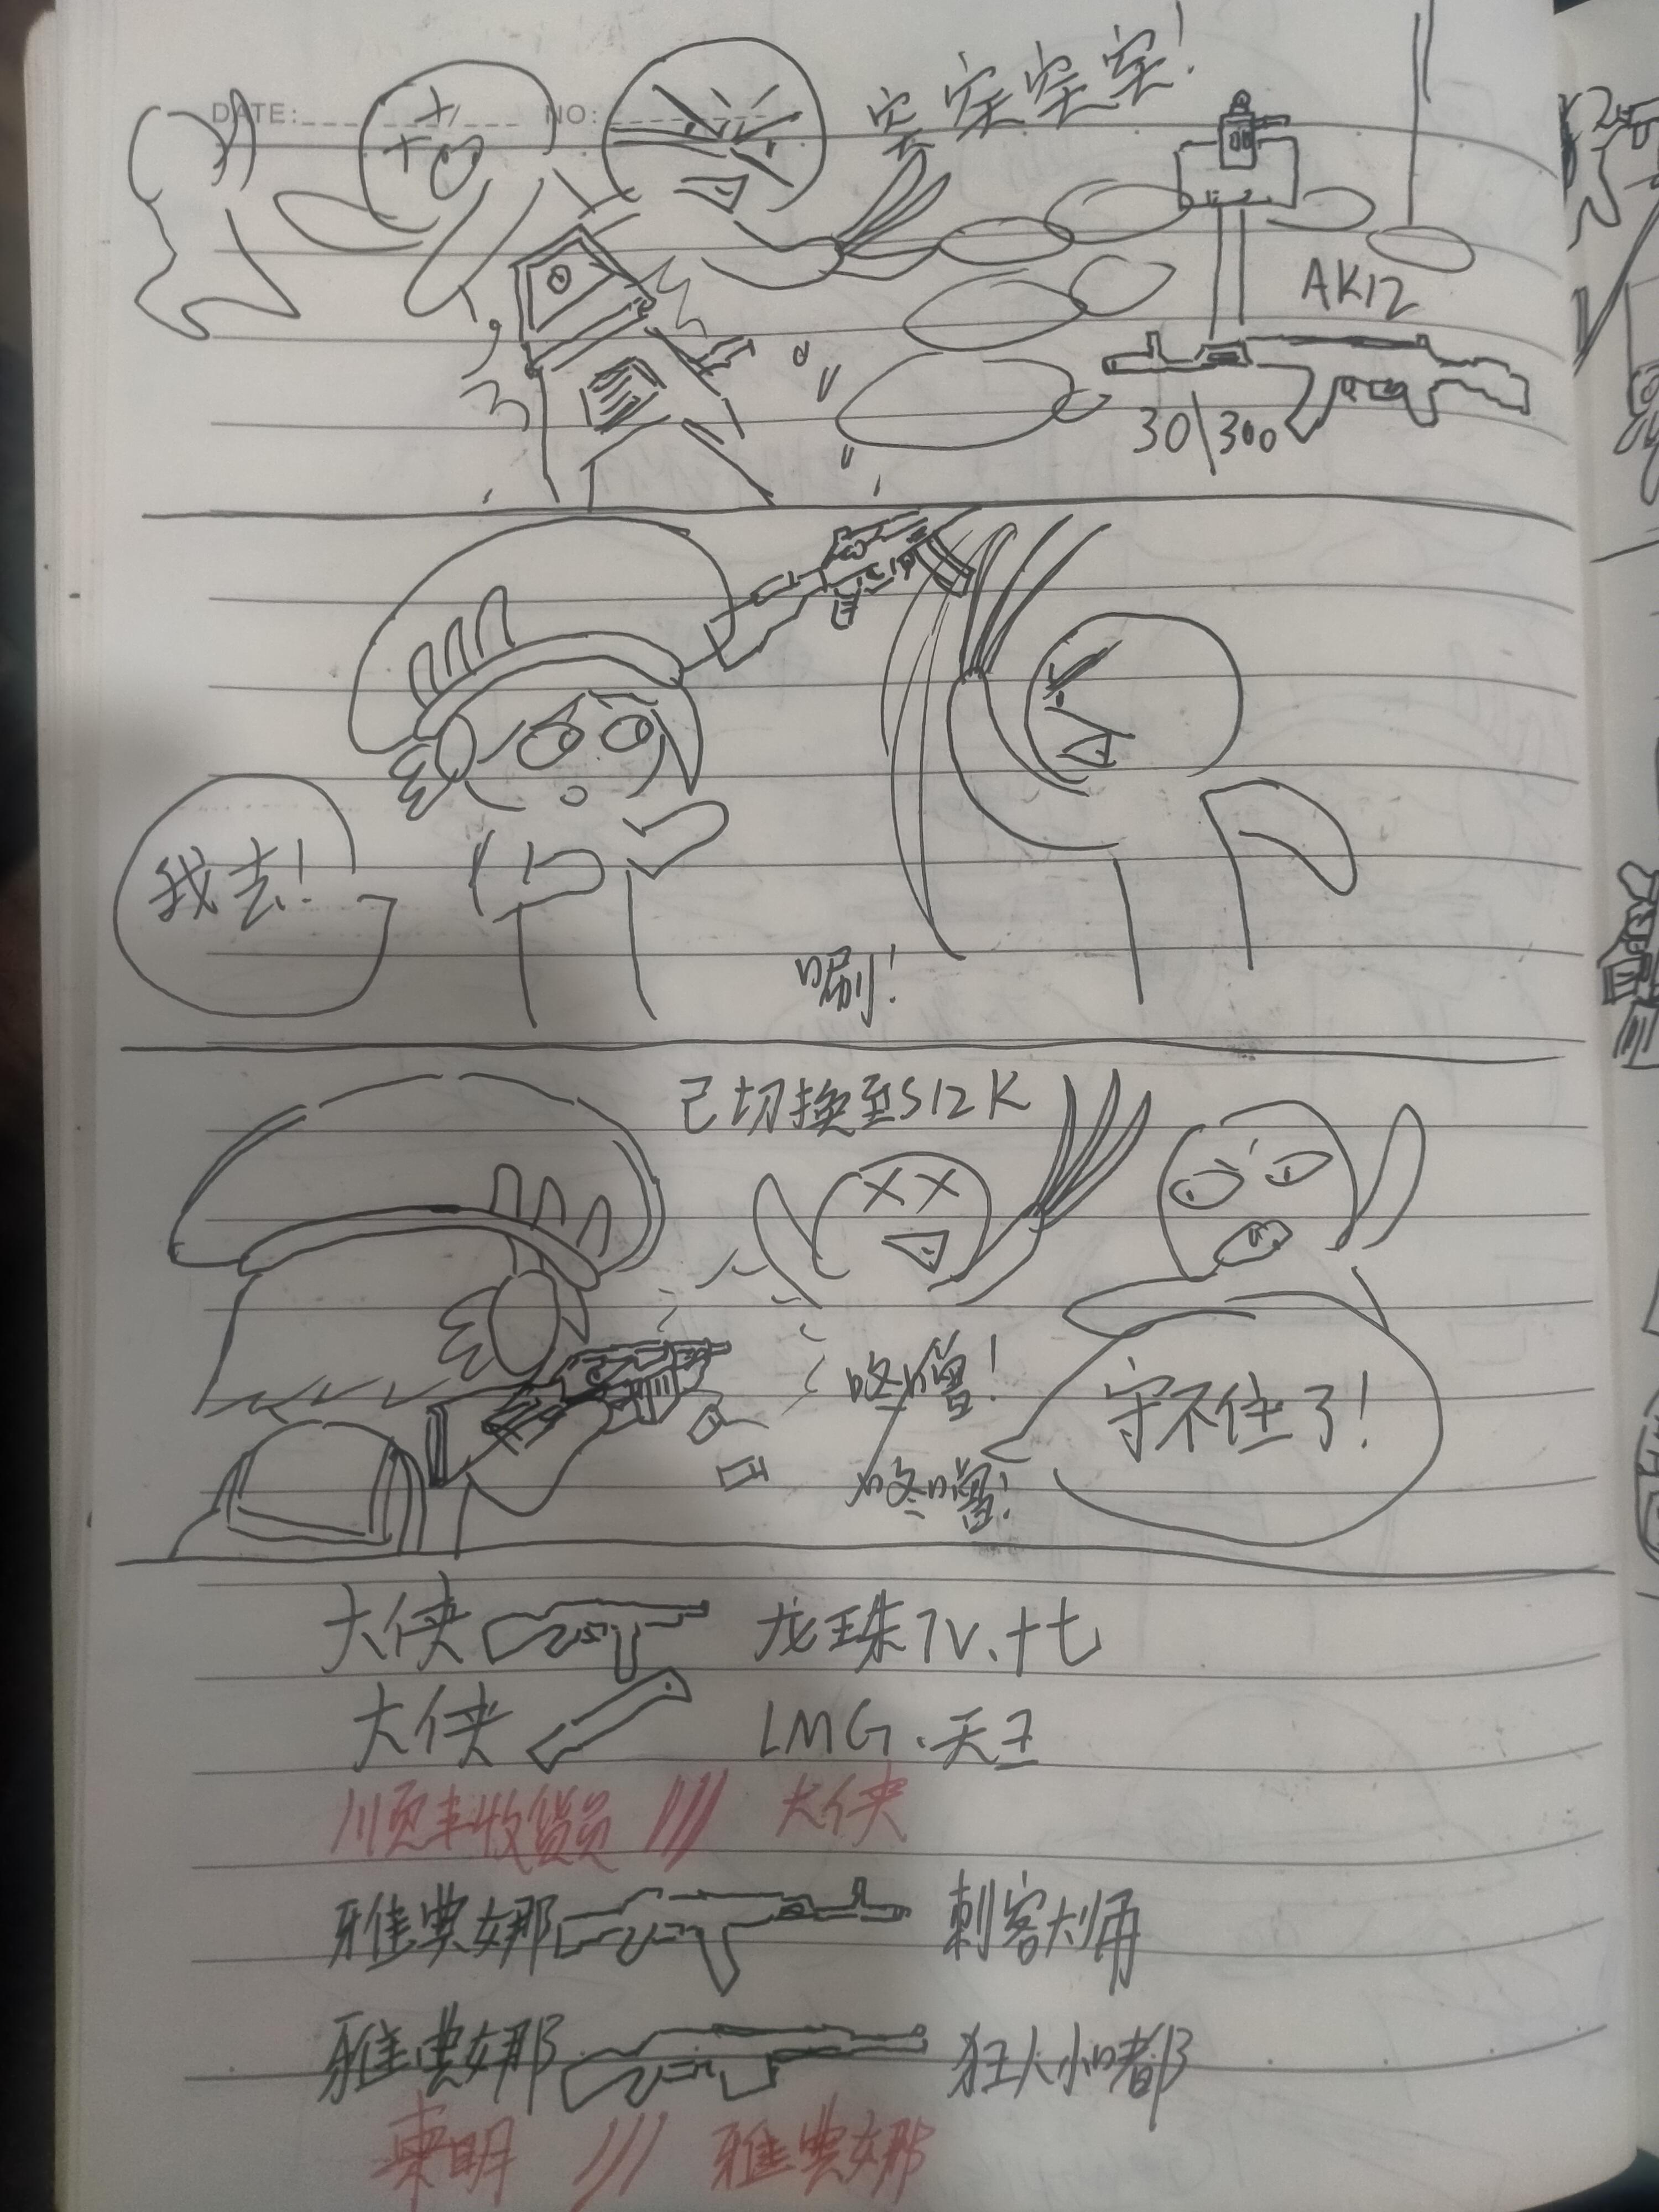 DATE: / NO:
突突突突!
AK12
30\300
我去!
唰!
已切换至S12K
咚噜!
守不住了!
咚噜!
大侠 龙珠TV、十七
大侠 LMG、天王
顺丰收货员 /// 大侠
雅典娜 刺客大师
雅典娜 狂人小嘟
東明 /// 雅典娜